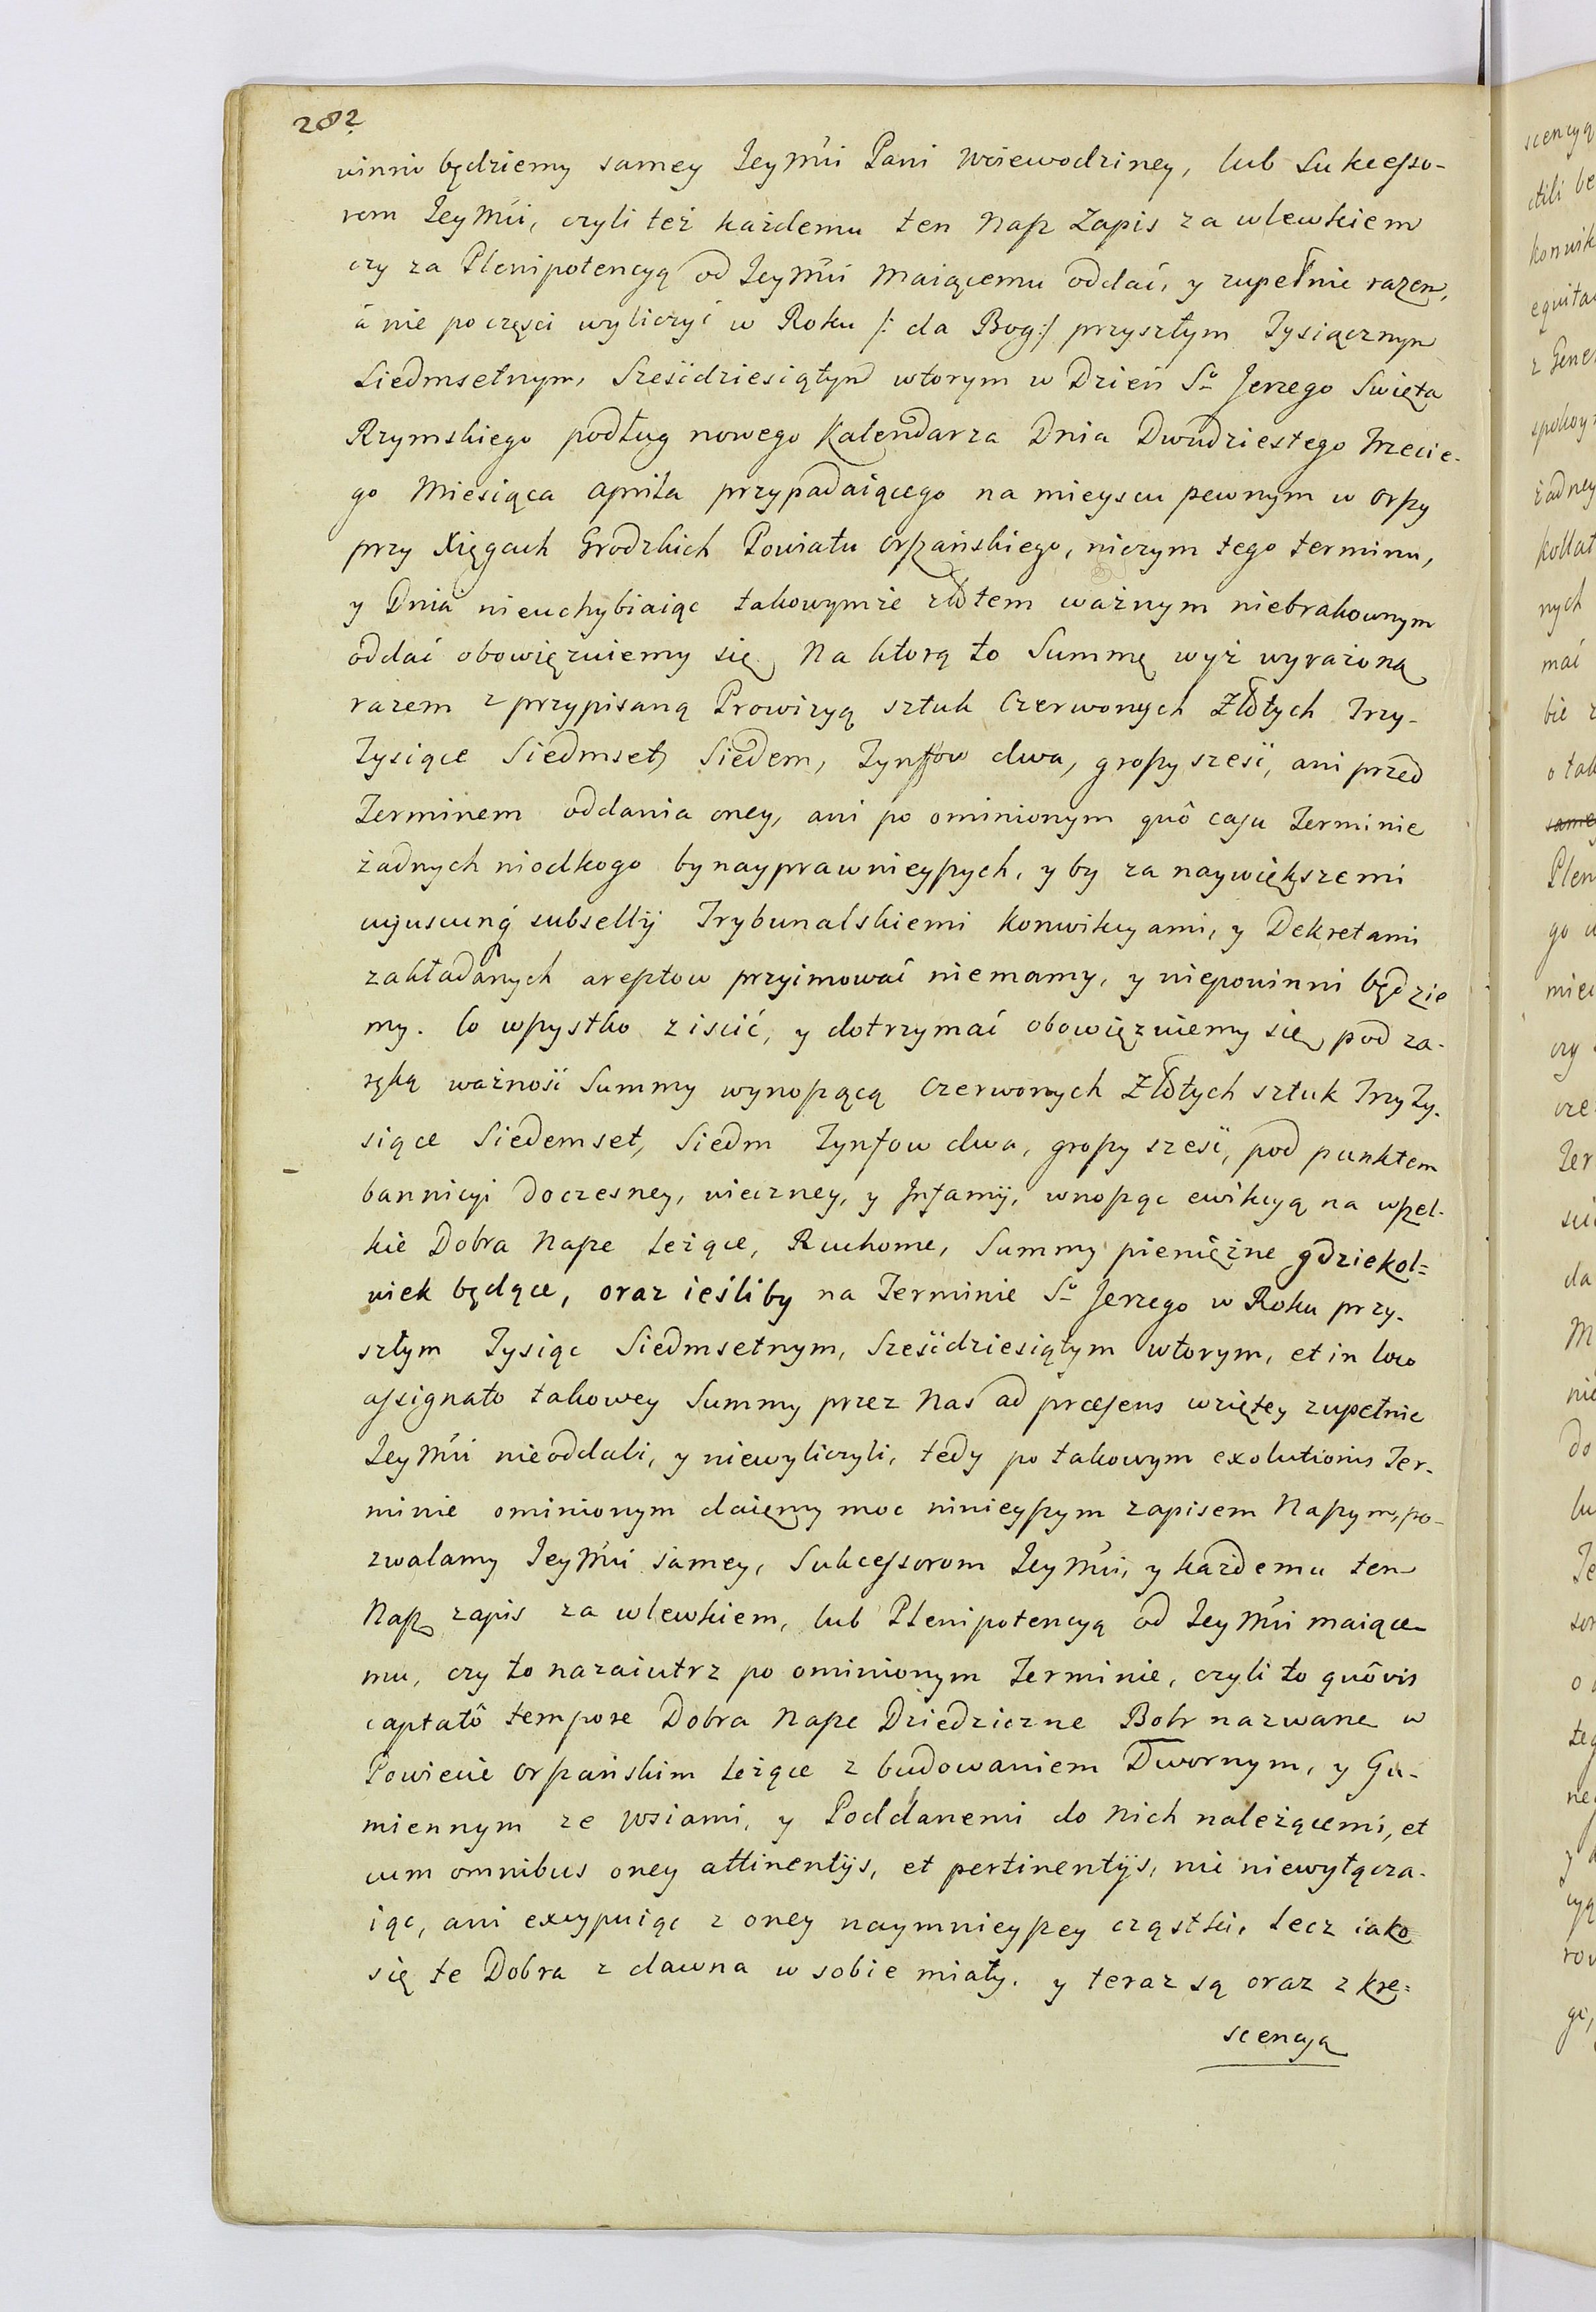 282
winni będziemy samey JeyMći Pani Wdiewodziney, lub Sukcesso-
rom JeyMći, czyli też każdemu ten Nasz Zapis za wlewkiem
czy za Plenipotencyą od JeyMći Maiącemu oddać, y zupełnie razem,
á nie poczęsci wyliczyć w Roku /: da Bog :/ przyszłym Tysiącznym
Siedmsetnym, Sześćdziesiątym wtorym w Dzień So Jerzego Swięta
Rzymskiego podług nowego Kalendarza Dnia Dwudziestego Trzecie-
go Miesiąca Apryla przypadaiącego na mieyscu pewnym w Orszy
przy Xięgach Grodzkich Powiatu Orszańskiego, niczym tego terminu,
y Dnia nieuchybiaiąc takowymże złotem ważnym niebrakownym
oddać obowięzuiemy się, Na ktorą to Summę wyż wyrażoną
razem z przypisaną Prowizyą sztuk Czerwonych Złotych Trzy-
Tysiące Siedmset, Siedem, Tynffow dwa, groszy sześć, ani przed
Terminem oddania oney, ani po ominionym quô casu Terminie
żadnych niodkogo by nayprawnieyszych, y by za naywiększemi
cujuscunq́ subsellij Trybunalskiemi Konwikcyami, y Dekretami
zakładanych aresztow przyimować niemamy, y niepowinni będzie
my. Co wszystko ziscić, y dotrzymać obowięzuiemy się, pod za-
ręką ważność Summy wynoszącą Czerwonych Złotych sztuk Trzy Ty-
siące Siedemset, Siedm Tynfow dwa, groszy sześć, pod punktem
bannicyi Doczesney, wieczney, y Jnfamij, wnosząc ewikcyą na wszel-
kie Dobra Nasze leżące, Ruchome, Summy pieniężne gdziekol=
wiek będące, oraz ieśliby na Terminie So Jerzego w Roku przy-
szłym Tysiąc Siedmsetnym, Sześćdziesiątym wtorym, et in loco
assignato takowey Summy przez Nas ad præsens wziętey zupełnie
JeyMći nieoddali, y niewyliczyli, tedy po takowym exolutionis Ter-
minie ominionym daiemy moc ninieyszym zapisem Naszym, po-
zwalamy JeyMći samey, Sukcessorom JeyMći, y każdemu ten
Nasz zapis za wlewkiem, lub Plenipotencyą od JeyMći maiące-
mu, czy to nazaiutrz po ominionym Terminie, czyli to quôvis
captatô tempore Dobra Nasze Dziedziczne Bobr nazwane w
Powiecie Orszańskim leżące z budowaniem Dwornym, y Gu-
miennym ze wsiami, y Poddanemi do Nich należącemi, et
cum omnibus oney attinentijs, et pertinentijs, nic niewyłącza-
iąc, ani excypuiąc z oney naymnieyszey cząstki, lecz iako
się te Dobra z dawna w sobie miały, y teraz są oraz z kre=
scencyą